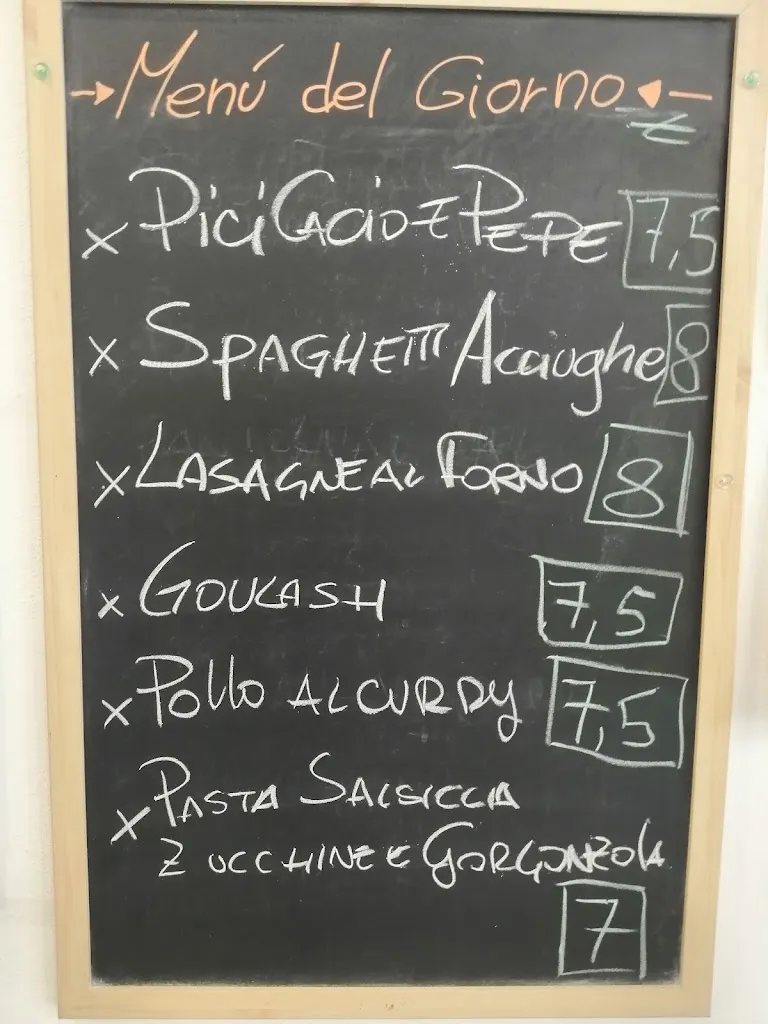 →Menú del Giorno←
x Pici Cacio E Pepe 7,5
x Spaghetti Acciughe 8
x Lasagne al Forno 8
x Goulash 7,5
x Pollo al Curry 7,5
x Pasta Salsiccia
Zucchine e Gorgonzola
7